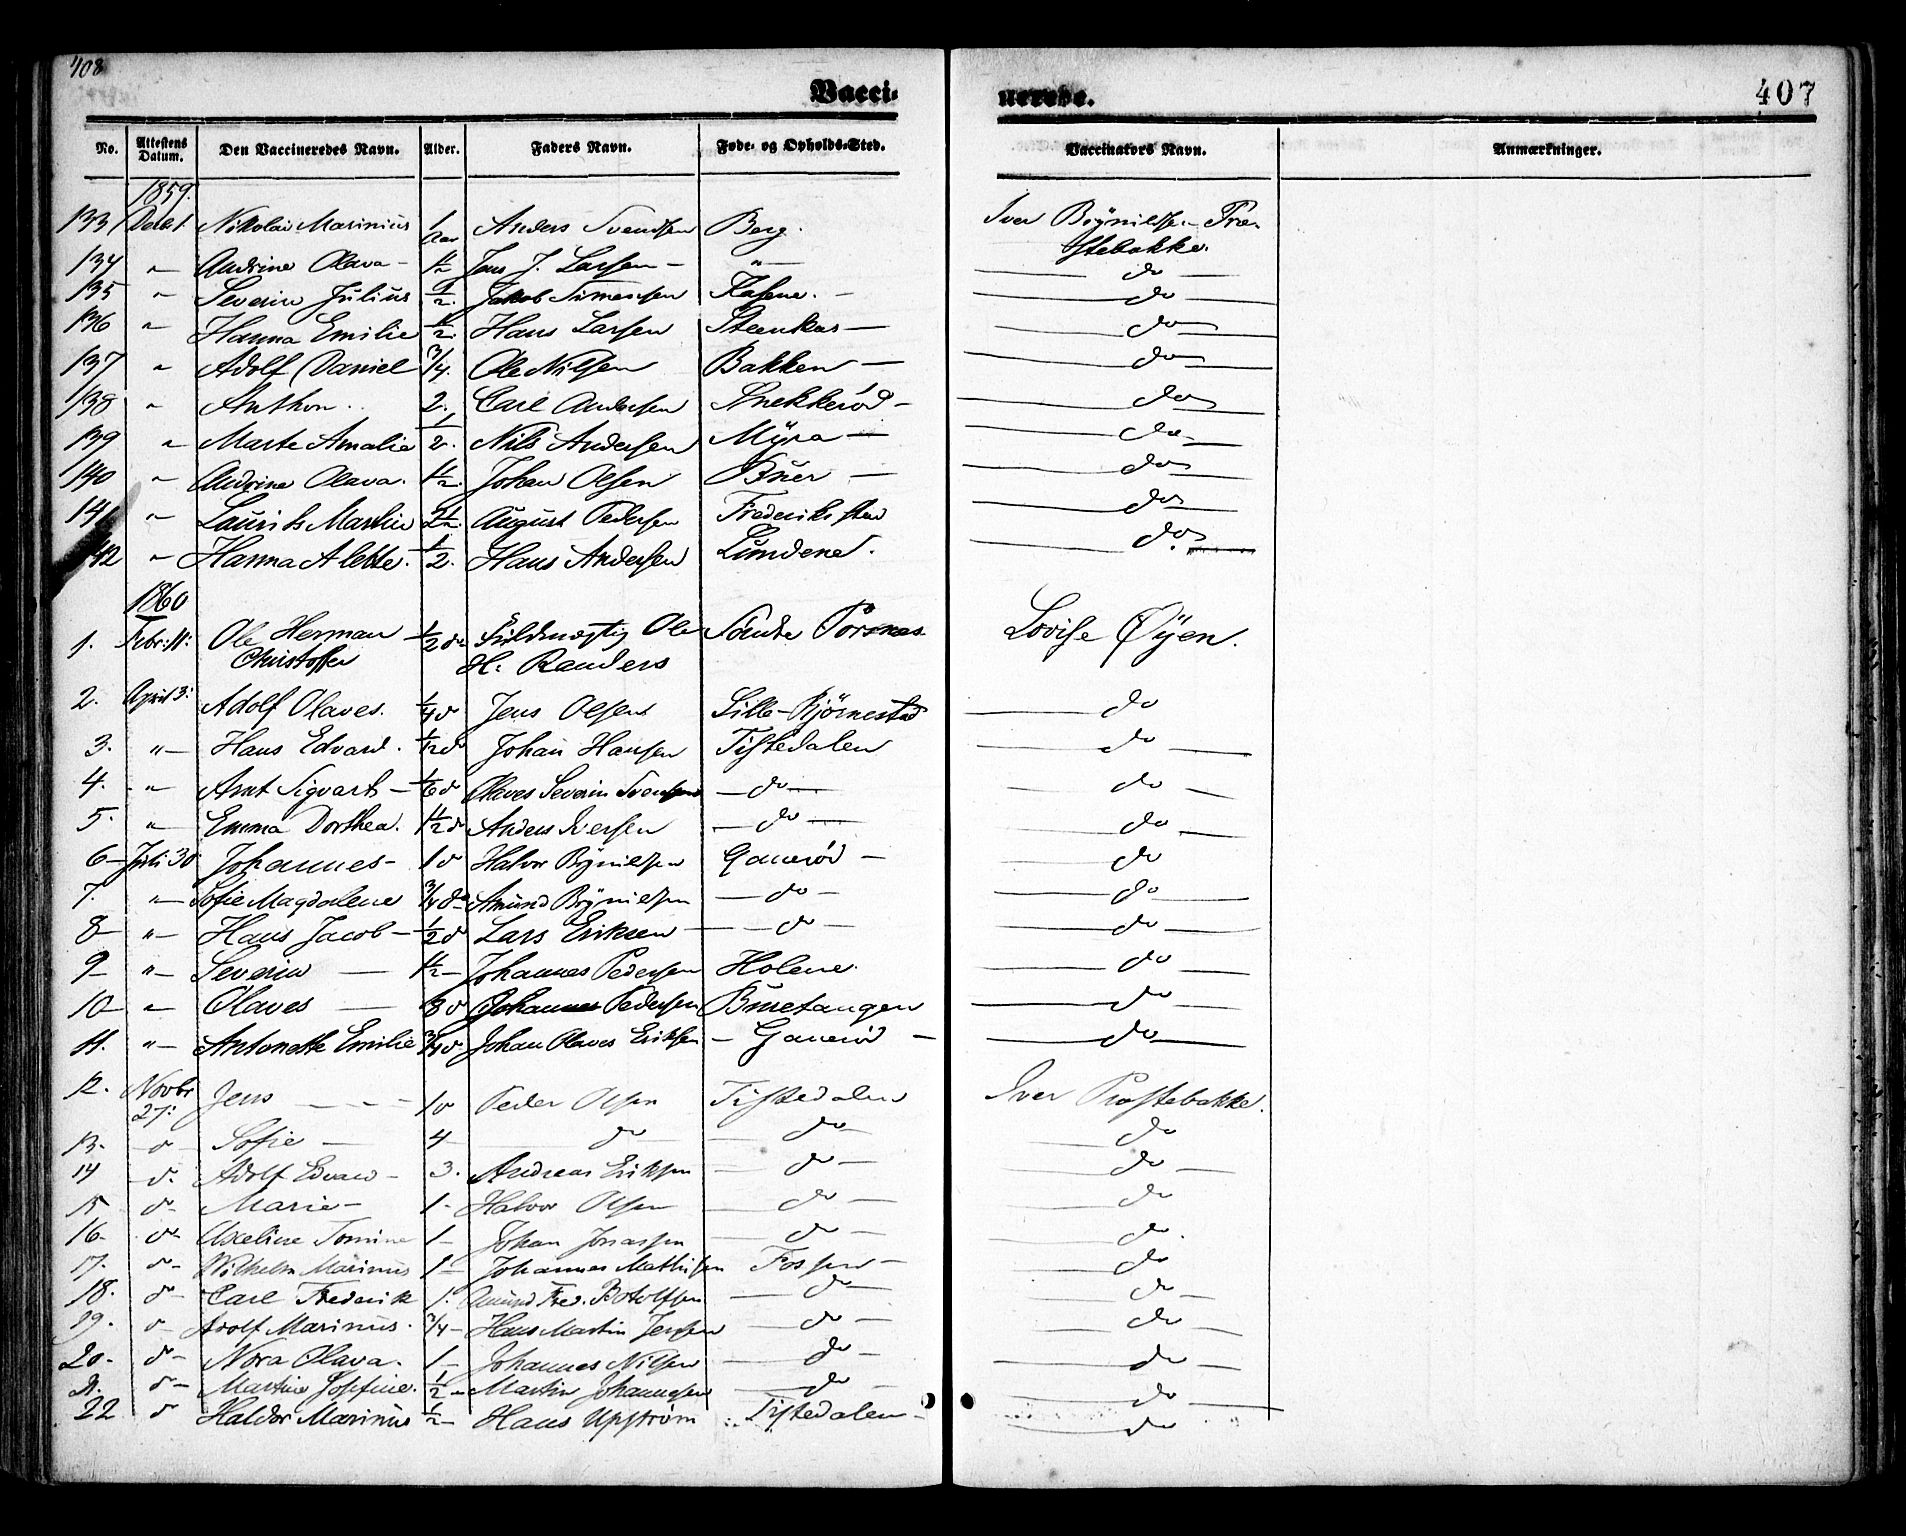 408
Vacci-
nerede.
407
No. Attestens Datum. Den Vaccineredes Navn. Alder. Faders Navn. Føde- og Opholds-Sted. Vaccinators Navn. Anmærkninger.
1859.
133 Nikolai Marinius 1 Aar Anders Svendsen Berg. Iver Brynildsen
134 " Andrine Olava - 1½ Jens J. Larsen - " - do -
135 " Severin Julius ½. Jakob Simensen Kasene. - do
136 " Hanna Emilie ½. Hans Larsen Steenkas - do
137 " Adolf Daniel 3/4. Ole Nilsen Bakken - do
138 " Anthon. 2. Carl Andersen Snekkerød - do
139 " Marte Amalia ½. Nils Andersen Myra - do -
140 " Andrine Olava. 1½. Johan Olsen Buer - do
141 " Laurits Martin August Pedersen Frederikstad do
142 " Hanna Alette. ½. Hans Andersen Lundene. do.
1860
1. Febr: 11: Ole Herman ½ do Fuldmægtig Ole Søndre Torsnes Lovise Øyen.
Christoffer H. Randers
2. April 3: Adolf Olaves. ¼ d Jens Olsen Lille-Bjørnestad do
3. " - Hans Edvard. ½ do Johan Hansen Tistedalen do -
4. " Arnt Sigvart - 1/6 d Olaves Severin Svensen - do - do -
5. " Emma Dorthea. 1½ d Anders Iversen - do - do -
6 - Juli 30 Johannes - 1 d Halvor Brynildsen Ganerød - do
7. " - Sofie Magdalene 3/4 do Amund Brynildsen - do - do -
8 - " - Hans Jacob - ½ d Lars Eriksen - - do - do -
9 - " - Severin - 1½ - Johannes Pedersen Holene. do -
10 - " - Olaves - Johannes Pedersen Buretangen do -
11. " - Antonette Emilie 3/4 d Johan Olaves Eriksen - Ganerød - do -
12. Novbr 27: Jens - - - 1 d Peder Olsen Tistedalen Iver Prestebakke.
13. d - Sofie - 4 - do do - do
14 d. Adolf Edvard - 3. Andreas Eriksen - do - do -
15 d - Marie - 1 - Halvor Olsen do - do
16 - d - Axeline Tomine 1 - Johan Jonassen do - do.
17. d - Wilhelm Marinus 1 - Johannes Mathisen Fossen - do
18. d - Carl Frederik 1. Amund Fred. Botolfsen do - do -
19. d - Adolf Marinus. 3/4 - Hans Martin Jensen do - do
20 - d - Nora Olava. 1 - Johannes Nilsen - do - do -
21. d - Martine Josefine. ½ - Martin Johannesen do - do -
22 d Haldor Marinus ½ - Hans Upstrøm Tistedalen - do